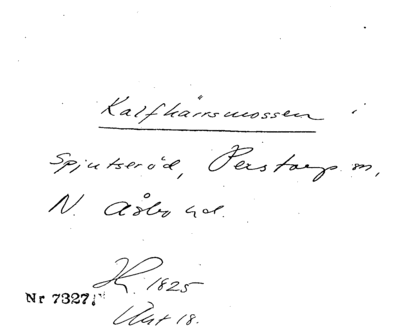 Kalfkärrsmossen i
Spjutseröd, Perstorp sn,
N. Åsbo hd.
1825
Nr 7327.
Akt 18.